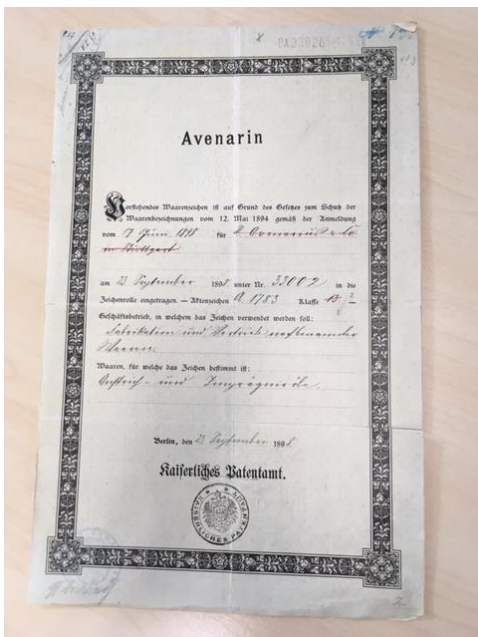 Avenarin
Vorstehendes Waarenzeichen ist auf Grund des Gesetzes zum Schutz der
Waarenbezeichnungen vom 12. Mai 1894 gemäß der Anmeldung
vom 7 Juni 1898 für
in Stuttgart
am 23. September 1898 unter Nr. 33002 in die
Zeichenrolle eingetragen. — Aktenzeichen A. 1783 Klasse 13
Geschäftsbetrieb, in welchem das Zeichen verwendet werden soll:
Fabrikation und Vertrieb nachbenannter
Waaren.
Waaren, für welche das Zeichen bestimmt ist:
Anstrich- und Imprägniröle.
Berlin, den 23 September 1898.
Kaiserliches Patentamt.
KAISERLICHES PATENTAMT